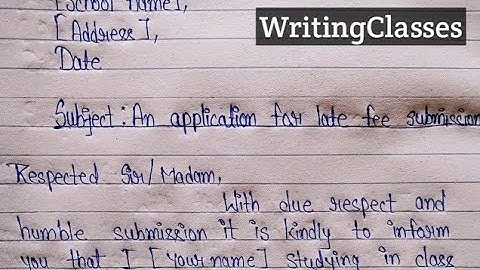 [School Name],
WritingClasses
[Address],
Date
Subject: An application for late fee submission
Respected Sir/Madam,
With due respect and
humble submission it is kindly to inform
you that I [Your name] studying in class